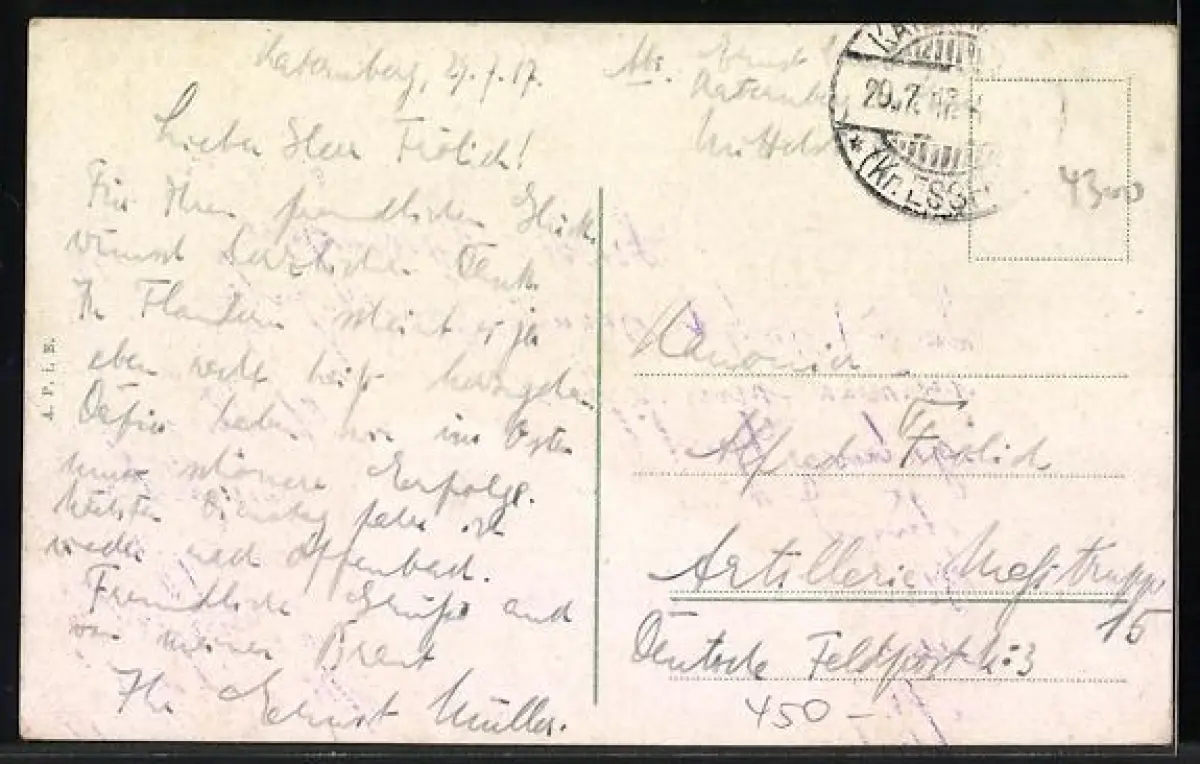 Katernberg, 29.7.17.
Lieber Herr Frölich!
Für Ihren freundlichen Glück-
wunsch herzlichen Dank.
In Flandern scheint es ja
eben recht heiß herzugehen.
Dafür haben wir im Osten
um so schönere Erfolge.
Nächsten Dienstag fahre ich
wieder nach Offenbach.
Freundliche Grüße auch
von meiner Braut
Ihr Ernst Müller.
A. P. i. E.
Abs: Ernst
Katernberg
Mittelst
29.7.17
(Kr. ESSEN
4300
Kanonier
Alfred Frölich
Artillerie Meßtrupp
15
Deutsche Feldpost 23
450 –